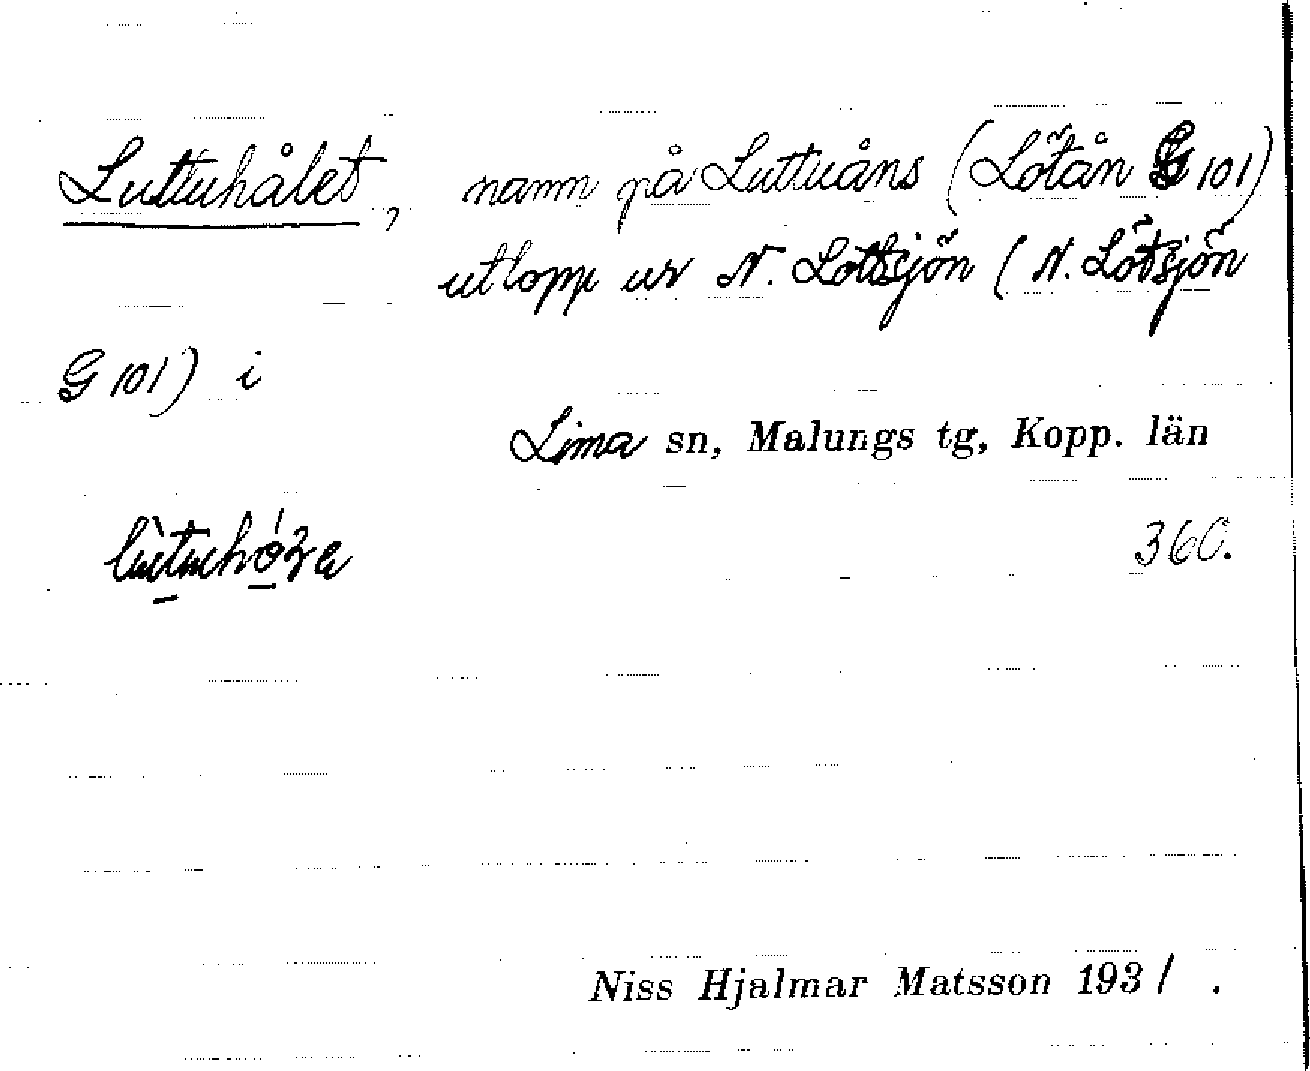 Luttuhålet, namn på Luttuåns (Lötån G 101)
utlopp ur N. Löttsjön (N. Lötsjön
G 101) i
Lima sn, Malungs tg, Kopp. län
360.
Niss Hjalmar Matsson 1931.